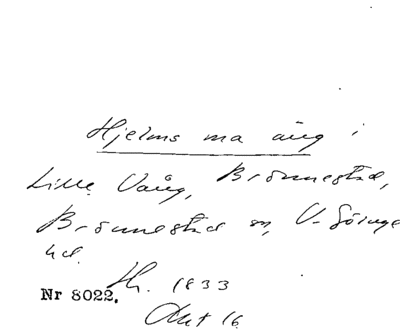 Hjelms ma äng i
Lille Vång, Brönnestad,
Brönnestad sn, V. Göinge
hd. Hr. 1833
Nr 8022.
Akt 16